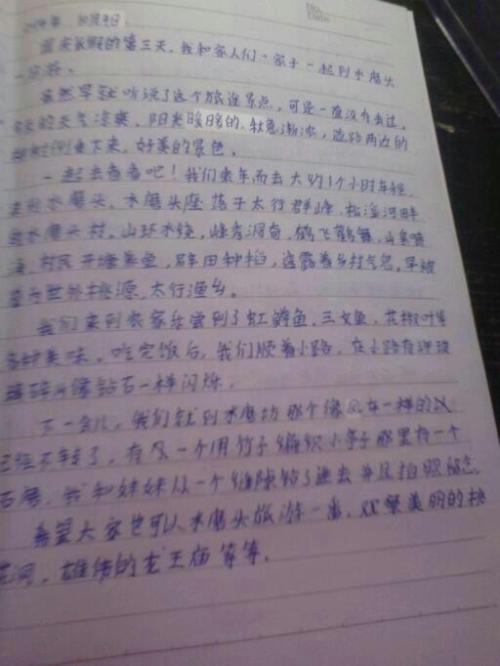 No.
Date
2014年 10月4日.
国庆长假的第三天,我和家人们一家子一起到水磨头
一日游。
虽然早就听说了这个旅游景点,可是一直没有去过,
天的天气凉爽,阳光暖暖的,秋意渐浓,道路两边的
树倒垂下来,好美的景色。
一起去看看吧!我们乘车而去大约1个小时车程,
来到水磨头,水磨头座落于太行群峰,松溪河畔
的水磨头村,山环水绕,峰奇洞奇,鹤飞鹤舞,山泉喷
涌,村民开塘养鱼,辟田种稻,透露着乡村气息,早被
誉为世外桃源,太行渔乡。
我们来到农家乐尝到了虹鳟鱼,三文鱼,花椒叶等
各种美味,吃完饭后,我们顺着小路,在小路有玻璃
碎片像钻石一样闪烁。
不一会儿,我们就到水磨坊那个像风车一样的
已经不转了,有一个用竹子编织小亭子那里有一个
石磨,我和妹妹从一个缝隙钻了进去并且拍照留念。
希望大家也可以水磨头旅游一番,观赏美丽的桃
花洞,雄伟的龙王庙等等.